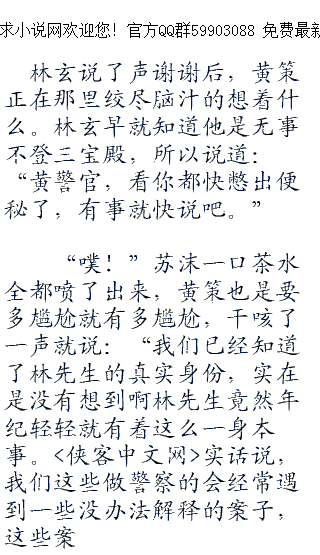 求小说网欢迎您！官方QQ群59903088 免费最新
林玄说了声谢谢后，黄策
正在那里绞尽脑汁的想着什
么。林玄早就知道他是无事
不登三宝殿，所以说道：
“黄警官，看你都快憋出便
秘了，有事就快说吧。”
“噗！”苏沫一口茶水
全都喷了出来，黄策也是要
多尴尬就有多尴尬，干咳了
一声就说：“我们已经知道
了林先生的真实身份，实在
是没有想到啊林先生竟然年
纪轻轻就有着这么一身本
事。<侠客中文网>实话说，
我们这些做警察的会经常遇
到一些没办法解释的案子，
这些案